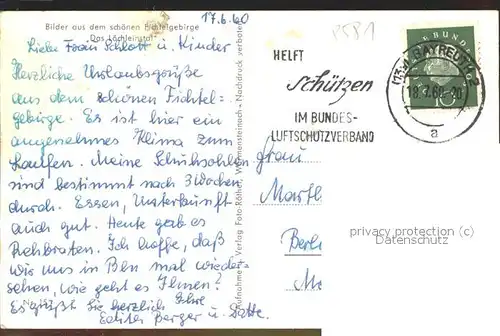 17.6.60
Bilder aus dem schönen Fichtelgebirge
Das Löchleinstal
Liebe Frau Schlott u. Kinder
Herzliche Urlaubsgrüße
aus dem schönen Fichtel-
gebirge. Es ist hier ein
angenehmes Klima zum
Laufen. Meine Schuhsohlen
sind bestimmt nach 3 Wochen
durch. Essen, Unterkunft
auch gut. Heute gab es
Rehbraten. Ich hoffe, daß
wir uns in Bln mal wieder-
sehen, wie geht es Ihnen?
Es grüßt Sie herzlich Ihre
Edith Berger u.
Aufnahme u. Verlag Foto-Röthel, Warmensteinach - Nachdruck verboten
HELFT
schützen
IM BUNDES-
LUFTSCHUTZVERBAND
(13a) BAYREUTH 2
18.7.60-20
a
10
Frau
Berl
privacy protection (c)
Datenschutz